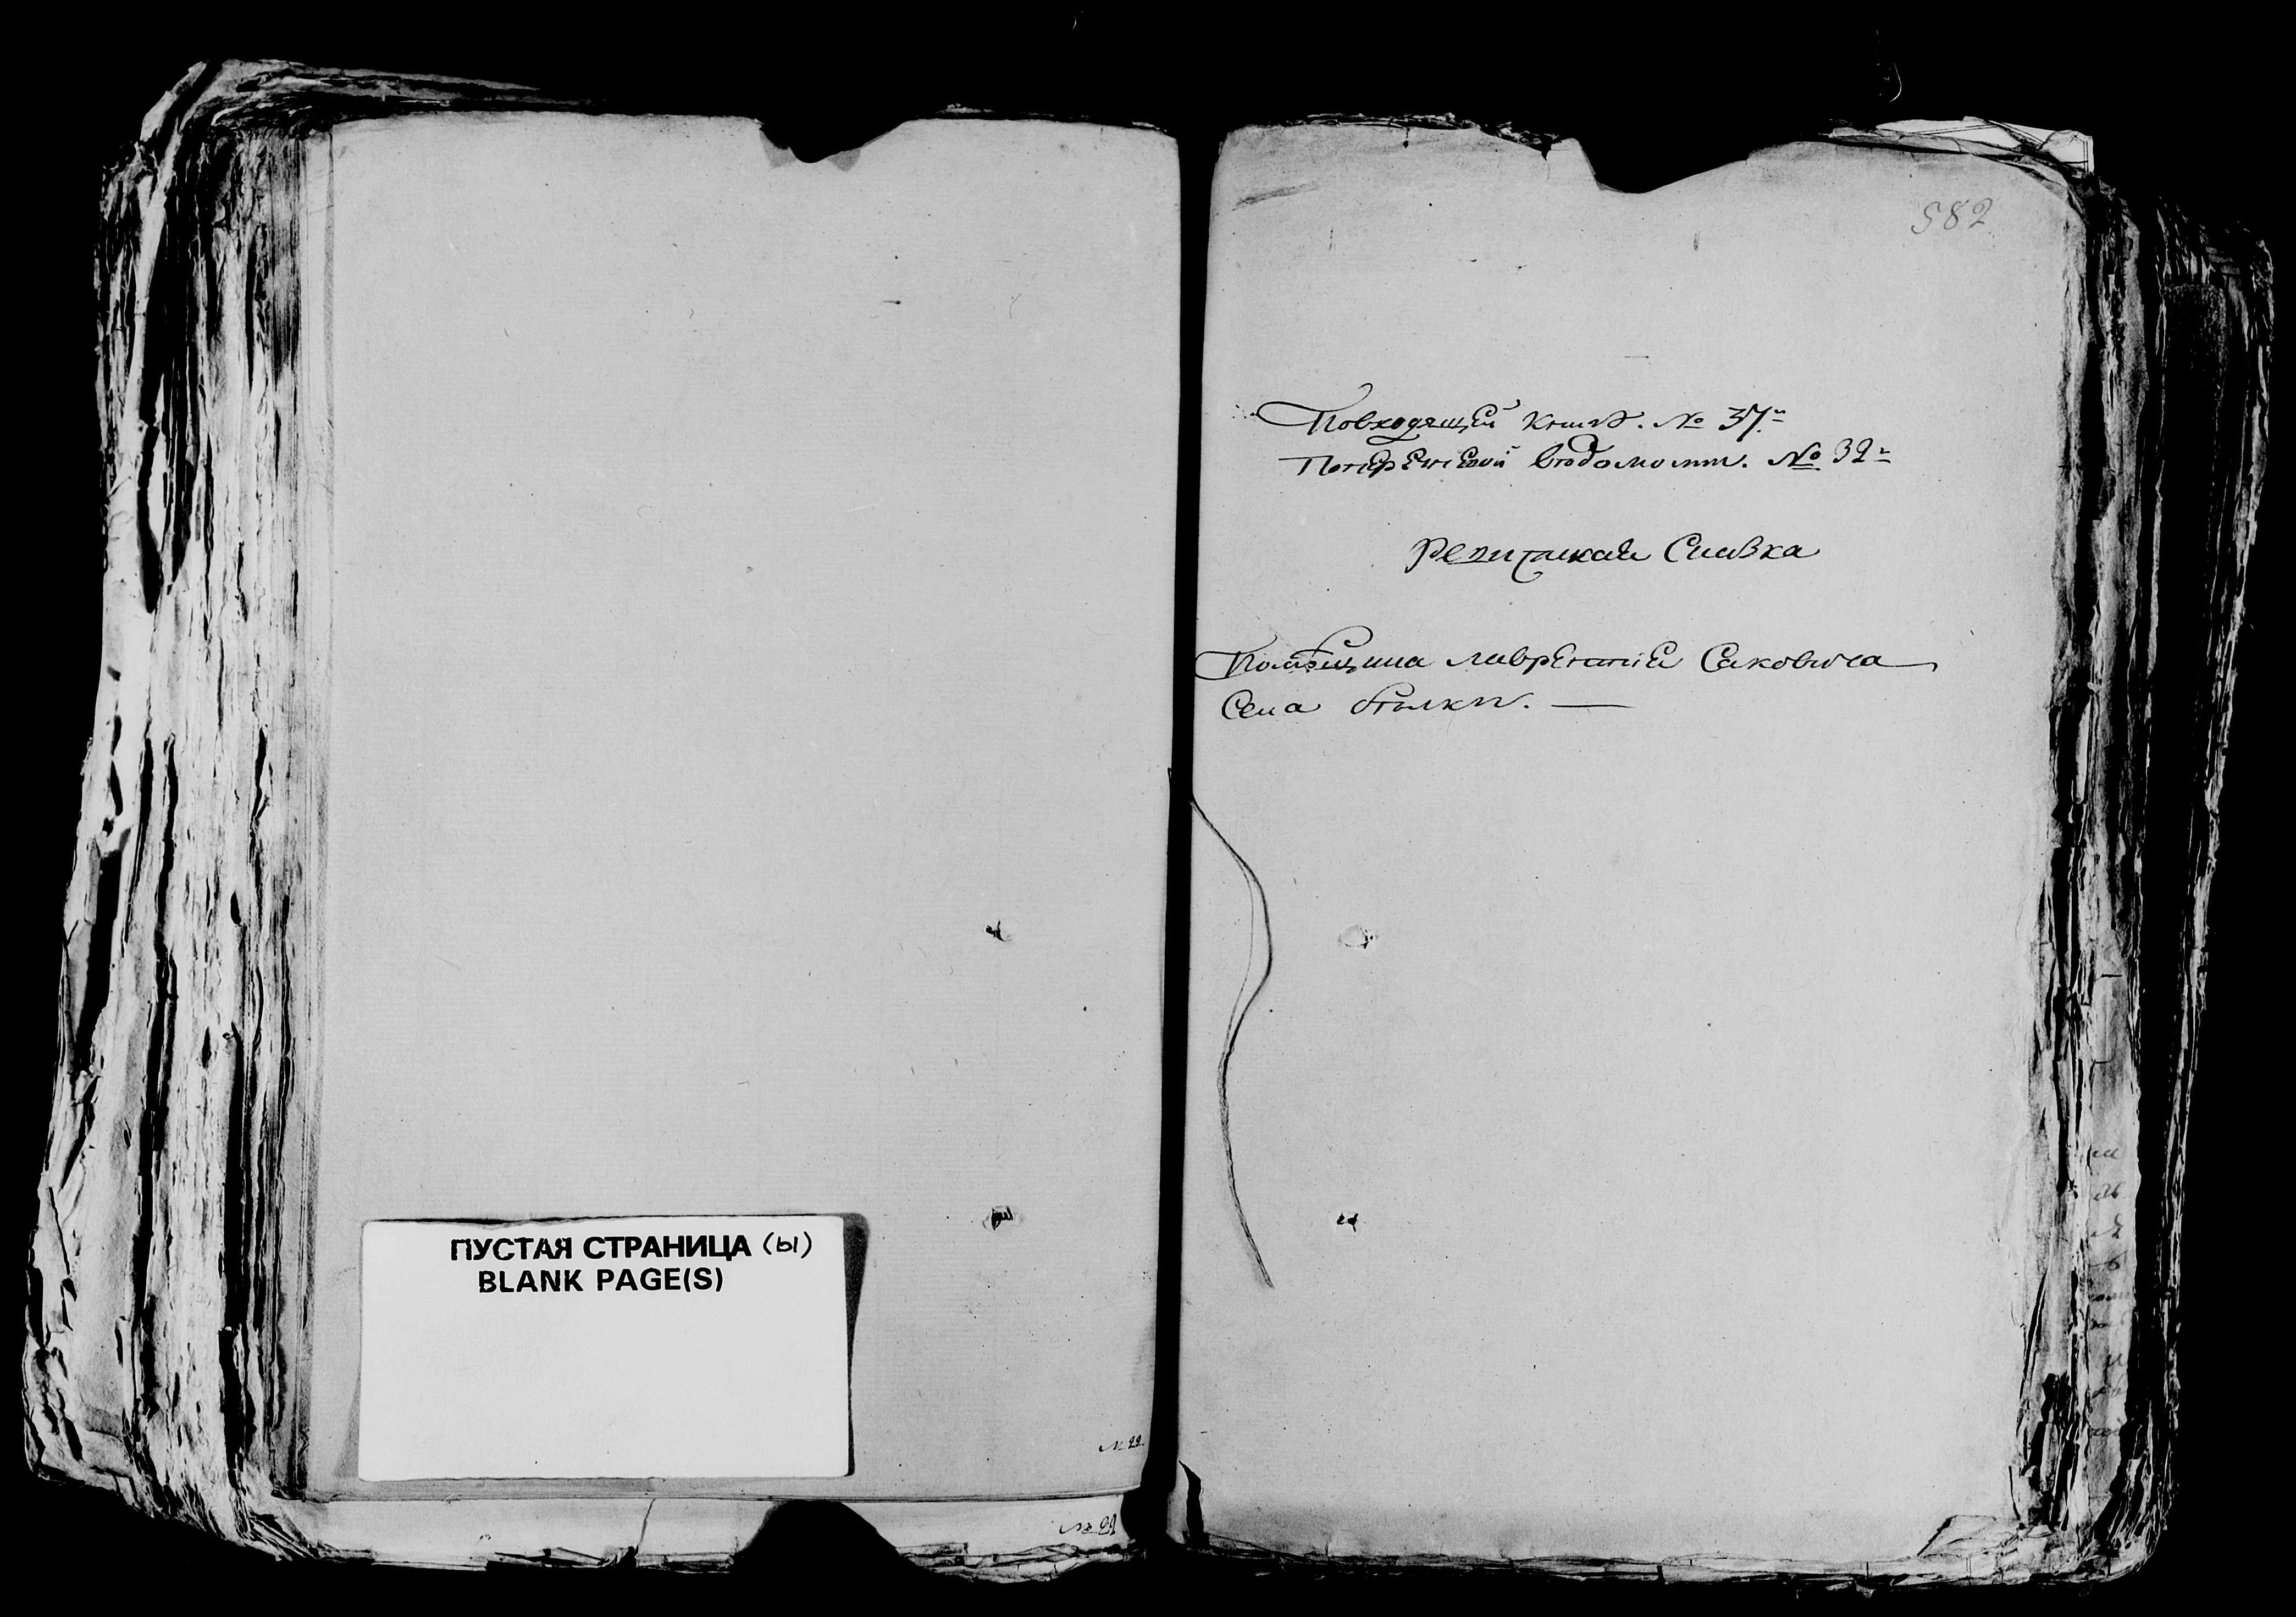 ПУСТАЯ СТРАНИЦА (Ы)
BLANK PAGE(S)
№ 22
№ 22
582
Повходящей Книгѣ. № 37й
Поперечневой Вѣдомости. № 32й
Ревизская Сказка
Помѣщика Лаврентия Саковича
Села Бѣлки.